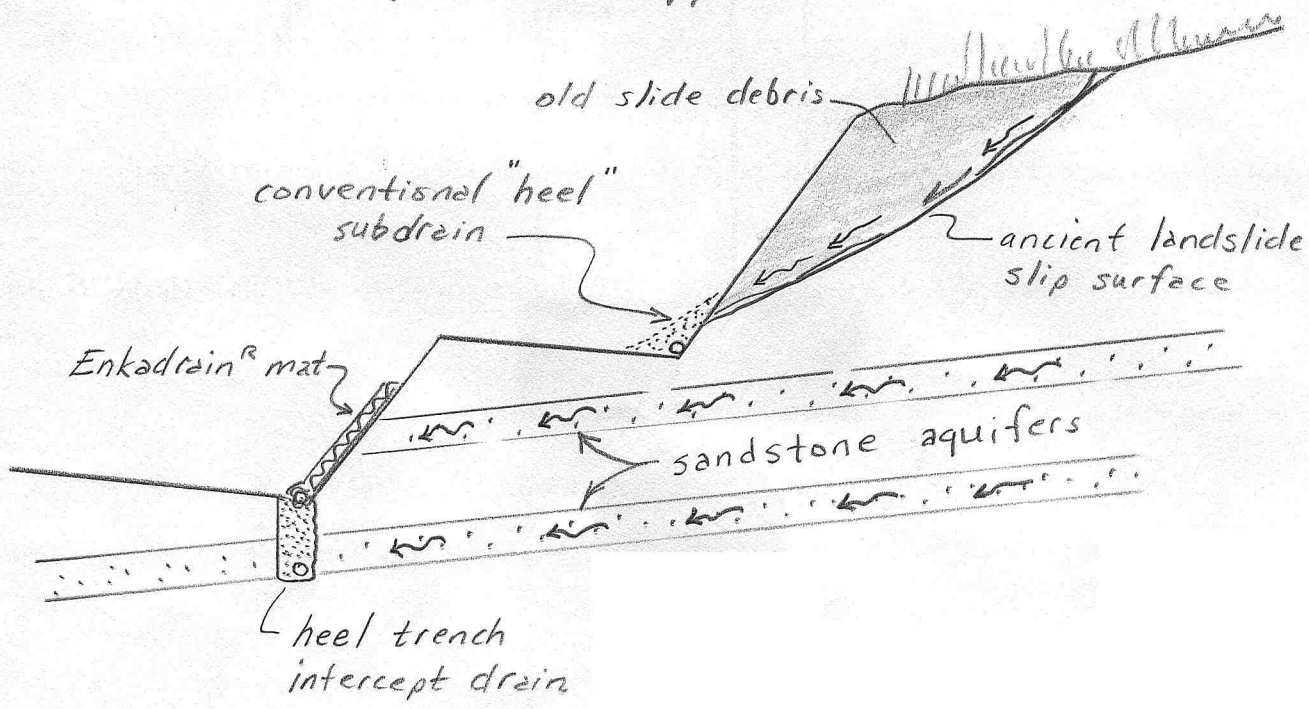 old slide debris
conventional "heel"
subdrain
ancient landslide
slip surface
Enkadrain® mat
sandstone aquifers
heel trench
intercept drain